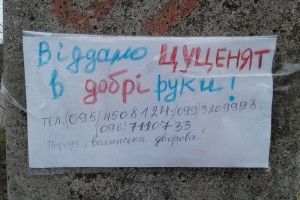 Віддамо ЦУЦЕНЯТ
в добрі руки!
ТЕЛ.(095)4508124;(099)3209998,
(096)7110733
Порода "висинська дворова"